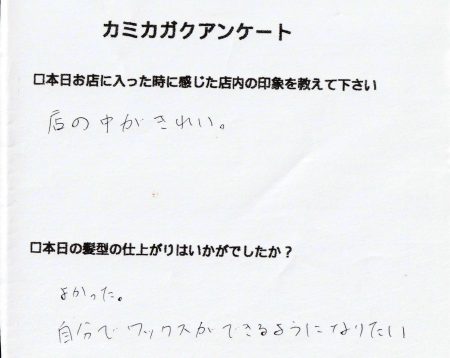 カミカガクアンケート
□本日お店に入った時に感じた店内の印象を教えて下さい
店の中がきれい。
□本日の髪型の仕上がりはいかがでしたか？
よかった。
自分でワックスができるようになりたい